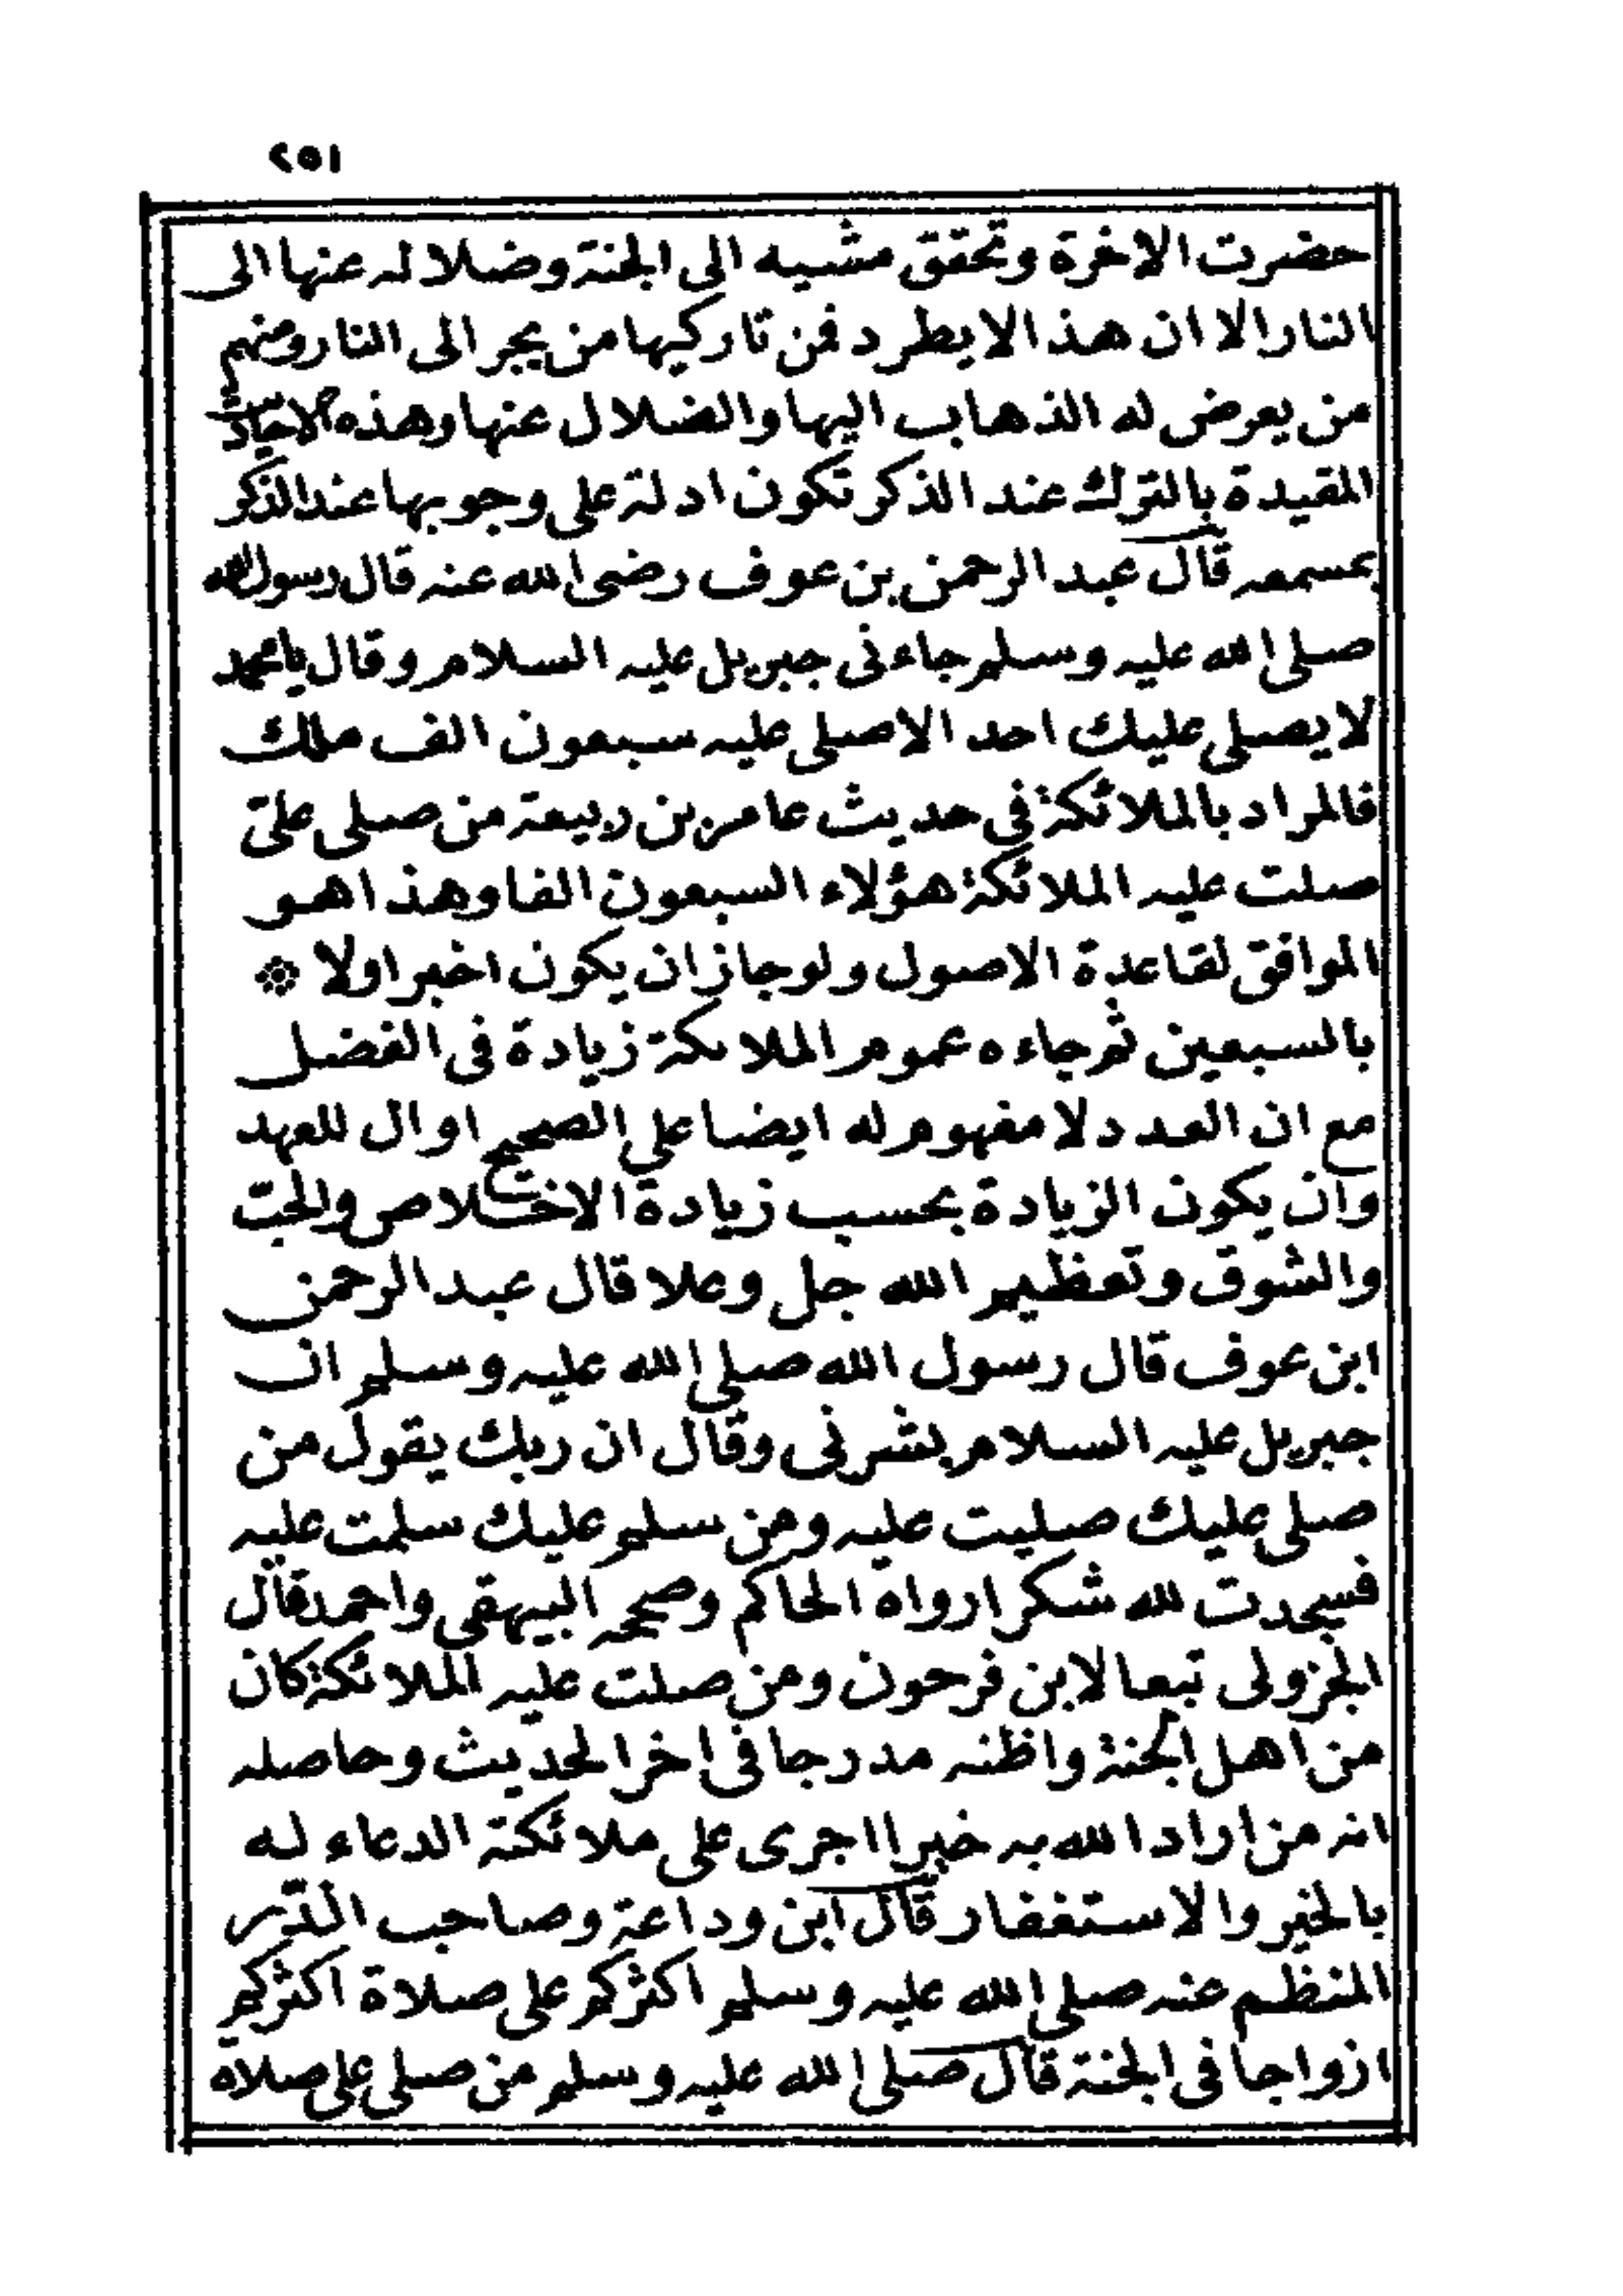 ٢٥١
حضرت الاخرة وتحقق مشيه الى الجنة وضلاله عنها الى
النار الا ان هذا لا يطرد فمن تاركيها من يجر الى النار ومنهم
من يعرض له الذهاب اليها والضلال عنها وهذه الاحاديث
المقيدة بالترك عند الذكر تكون ادلة على وجوبها عند الذكر
بمسمعه قال عبد الرحمن بن عوف رضى الله عنه قال رسول الله
صلى الله عليه وسلم جاءنى جبريل عليه السلام وقال يا محمد
لا يصلى عليك احد الا صلى عليه سبعون الف ملك
فالمراد بالملائكة فى حديث عامر بن ربيعة من صلى علىّ
صلت عليه الملائكة هؤلاء السبعون الفا وهذا هو
الموافق لقاعدة الاصول ولو جاز ان يكون اخبر اولا ※
بالسبعين ثم جاءه عموم الملائكة زيادة فى الفضل
مع ان العدد لا مفهوم له ايضا على الصحيح او ال للعهد
وان يكون الزيادة بحسب زيادة الاخلاص والحبّ
والشوق وتعظيم الله جل وعلا قال عبد الرحمن
ابن عوف قال رسول الله صلى الله عليه وسلم ان
جبريل عليه السلام بشرنى وقال ان ربك يقول من
صلى عليك صليت عليه ومن سلم عليك سلمت عليه
فسجدت لله شكرا رواه الحاكم وصححه البيهقى واحمد قال
الجزولى تبعا لابن فرحون ومن صلت عليه الملائكة كان
من اهل الجنة واظنه مدرجا فى اخر الحديث وحاصله
انه من اراد الله به خيرا اجرى على ملائكته الدعاء له
بالخير والاستغفار قال ابن وداعة وصاحب الدّر
المنظم عنه صلى الله عليه وسلم اكثركم على صلاة اكثركم
ازواجا فى الجنة قال صلى الله عليه وسلم من صلى على صلاة